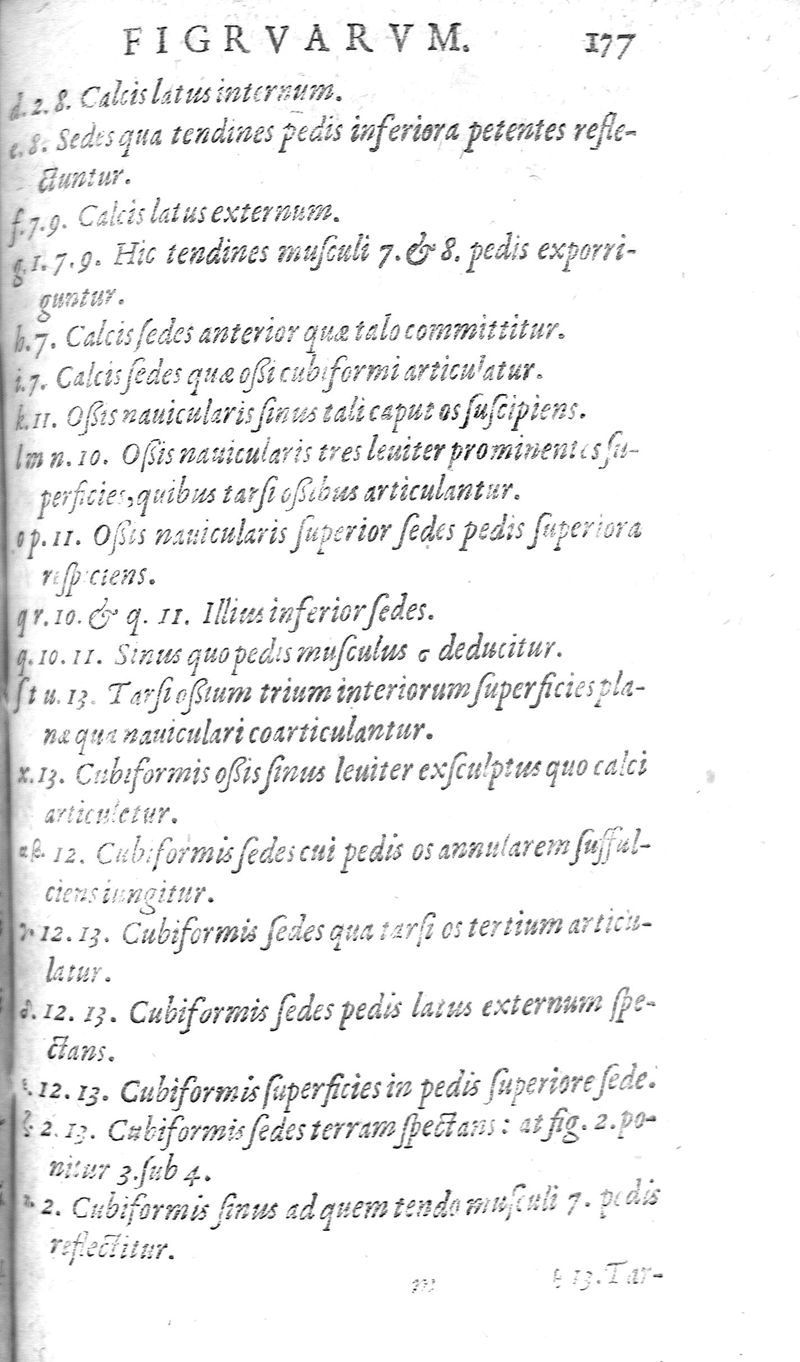 FIGRVARVM. 177
d. 2. 8. Calcis latus internum.
e. 8. Sedes qua tendines pedis inferiora petentes refle-
ctuntur.
f. 7. 9. Calcis latus externum.
g. 1. 7. 9. Hic tendines muſculi 7. & 8. pedis exporri-
guntur.
h. 7. Calcis ſedes anterior quæ talo committitur.
i. 7. Calcis ſedes quæ oſſi cubiformi articulatur.
k. 11. Oſſis nauicularis ſinus tali caput os ſuſcipiens.
l m n. 10. Oſſis nauicularis tres leuiter prominentes ſu-
perficies, quibus tarſi oſſibus articulantur.
o p. 11. Oſſis nauicularis ſuperior ſedes pedis ſuperiora
reſpiciens.
q r. 10. & q. 11. Illius inferior ſedes.
q. 10. 11. Sinus quo pedis muſculus 6 deducitur.
ſ t u. 13. Tarſi oſſium trium interiorum ſuperficies pla-
næ qua nauiculari coarticulantur.
x. 13. Cubiformis oſſis ſinus leuiter exſculptus quo calci
articuletur.
α β. 12. Cubiformis ſedes cui pedis os annularem ſufful-
ciens iungitur.
γ. 12. 13. Cubiformis ſedes qua tarſi os tertium articu-
latur.
δ. 12. 13. Cubiformis ſedes pedis latus externum ſpe-
ctans.
ε. 12. 13. Cubiformis ſuperficies in pedis ſuperiore ſede.
ζ. 2. 13. Cubiformis ſedes terram ſpectans: at fig. 2. po-
nitur 3. ſub 4.
η. 2. Cubiformis ſinus ad quem tendo muſculi 7. pedis
reflectitur.
m 13. Tar-